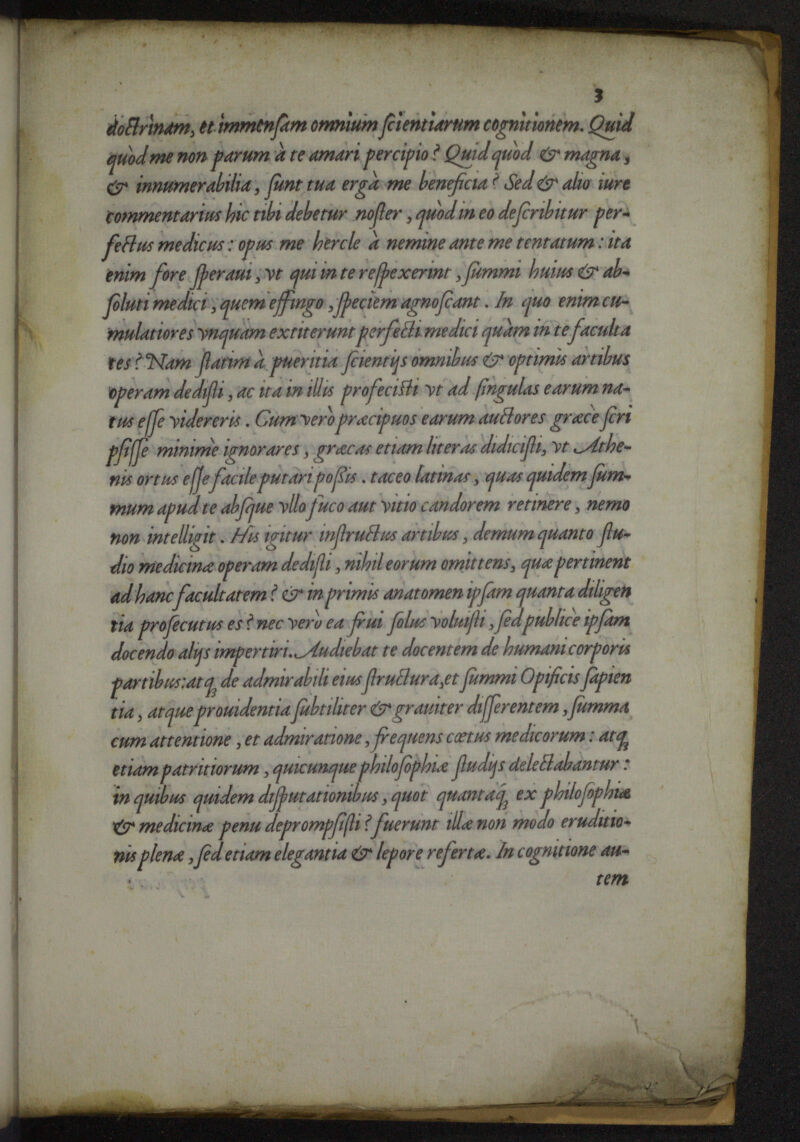 3
doctrinam, et immensam omnium scientiarum cognitionem. Quid
quòd me non parum à te amari percipio? Quid quòd & magna,
& innumerabilia, sunt tua ergà me beneficia? Sed & alio iure
commentarius hic tibi debetur noster, quòd in eo describitur per-
fectus medicus: opus me hercle à nemine ante me tentatum: ita
enim fore speraui, vt qui in te respexerint, summi huius & ab-
soluti medici, quem effingo, speciem agnoscant. In quo enim cu-
mulatiores vnquàm extiterunt perfecti medici quàm in te faculta
tes? Nam statim à pueritia scientijs omnibus & optimis artibus
operam dedisti, ac ita in illis profecisti vt ad singulas earum na-
tus esse videreris. Cum verò præcipuos earum auctores græcè scri
psisse minimè ignorares, græcas etiam literas didicisti, vt Athe-
nis ortus esse facile putari possis. taceo latinas, quas quidem sum-
mum apud te absque vllo fuco aut vitio candorem retinere, nemo
non intelligit. His igitur instructus artibus, demum quanto stu-
dio medicinæ operam dedisti, nihil eorum omittens, quæ pertinent
ad hanc facultatem? & in primis anatomen ipsam quanta diligen
tia prosecutus es? nec verò ea frui solus voluisti, sed publicè ipsam
docendo alijs impertiri. Audiebat te docentem de humani corporis
partibus: atq; de admirabili eius structura, et summi Opificis sapien
tia, atque prouidentia subtiliter & grauiter differentem, summa
cum attentione, et admiratione, frequens cœtus medicorum: atq;
etiam patritiorum, quicunque philosophiæ studijs delectabantur:
in quibus quidem disputationibus, quot quantaq; ex philosophiæ
& medicinæ penu deprompsisti? fuerunt illæ non modo eruditio-
nis plenæ, sed etiam elegantia & lepore refertæ. In cognitione au-
tem